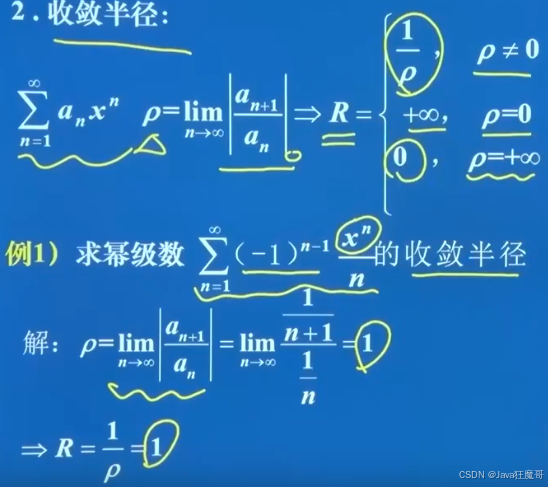 2.收敛半径:
∑_{n=1}^{∞} a_n x^n ρ=lim_{n→∞} |a_{n+1}/a_n| ⇒ R = { 1/ρ, ρ≠0
+∞, ρ=0
0, ρ=+∞
例1) 求幂级数 ∑_{n=1}^{∞} (-1)^{n-1} x^n/n 的收敛半径
解: ρ=lim_{n→∞} |a_{n+1}/a_n| = lim_{n→∞} (1/(n+1))/(1/n) = 1
⇒ R = 1/ρ = 1
CSDN @Java狂魔哥